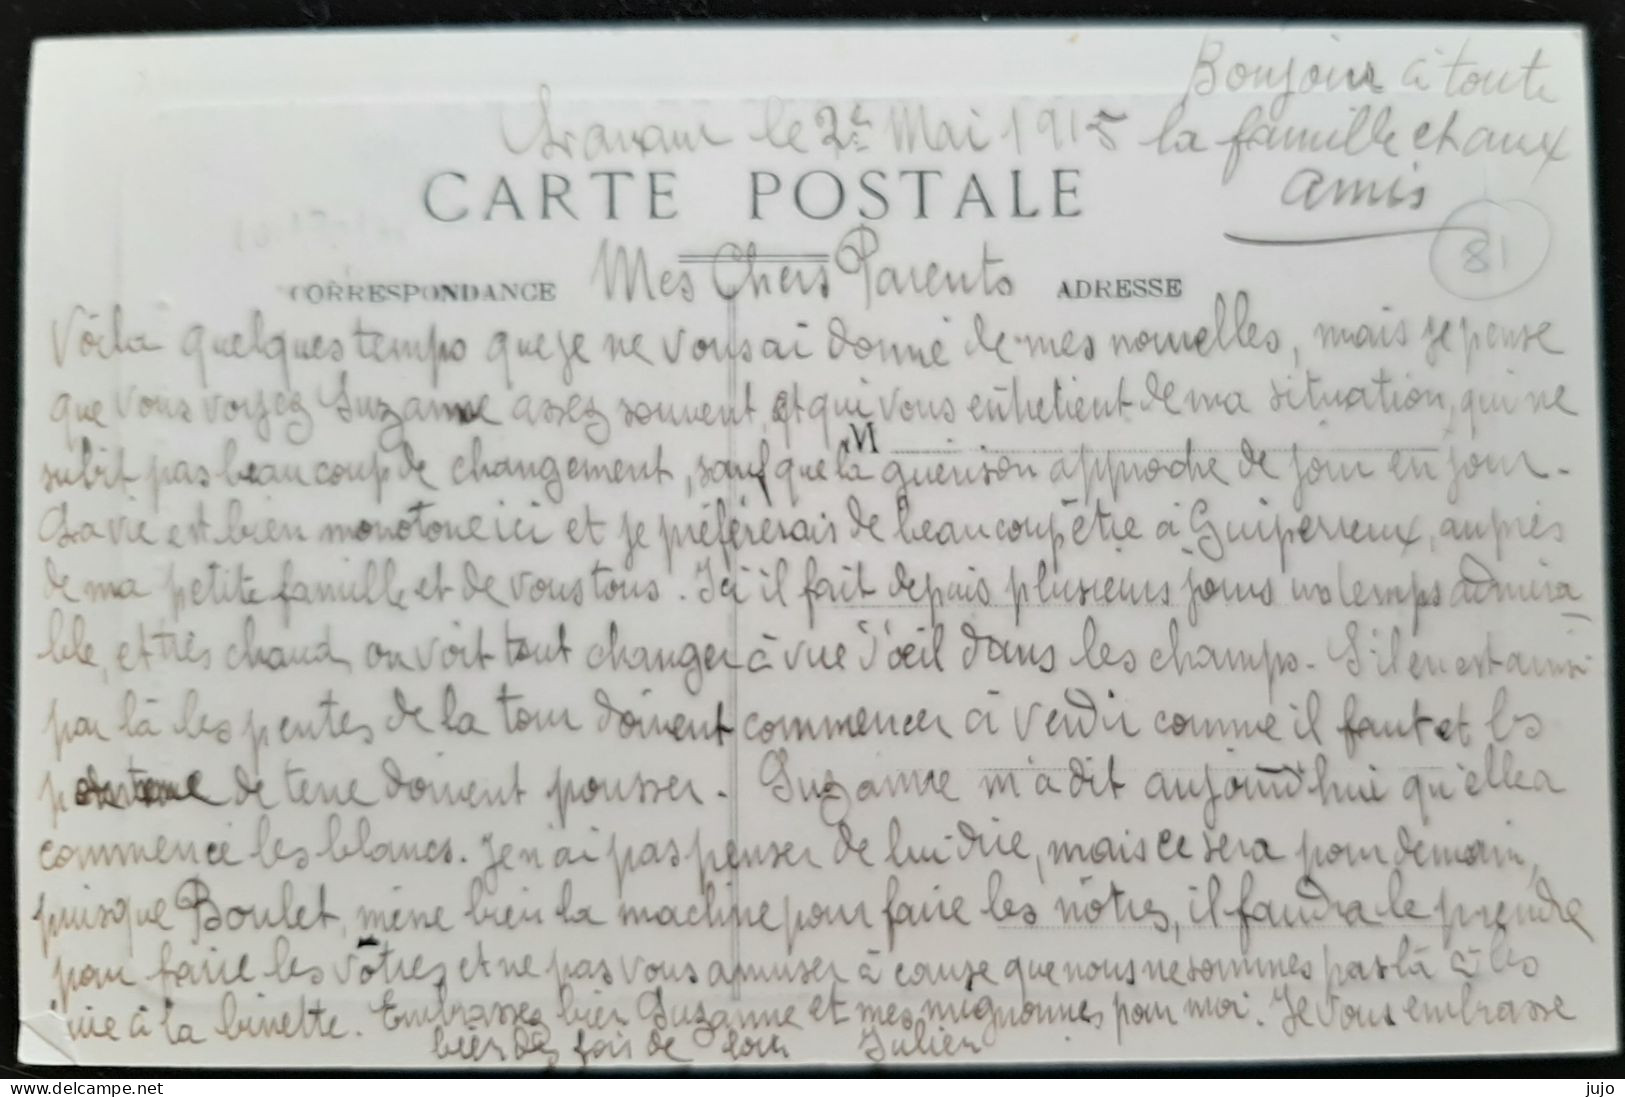 Bonjour à toute
la famille et aux
amis
le 2 Mai 1915
CARTE POSTALE
81
CORRESPONDANCE
Mes Chers Parents
ADRESSE
Voila quelques temps que je ne vous ai donné de mes nouvelles, mais je pense
que vous voyez Suzanne assez souvent, et qui vous entretient de ma situation, qui ne
subit pas beaucoup de changement, sauf que la guérison approche de jour en jour.
M
La vie est bien monotone ici et je préfèrerais de beaucoup être à Guiperreux, auprès
de ma petite famille et de vous tous. Ici il fait depuis plusieurs jours un temps admira
ble, et très chaud, on voit tout changer à vue d'œil dans les champs. S'il en est ainsi
par là les pentes de la tour doivent commencer à verdir comme il faut et les
de terre doivent pousser. Suzanne m'a dit aujourd'hui qu'elle a
commencé les blancs. Je n'ai pas penser de lui dire, mais ce sera pour demain,
puisque Boulet, mène bien la machine pour faire les nôtres, il faudra le prendre
pour faire les vôtres et ne pas vous amuser à cause que nous ne sommes pas là à les
à la binette. Embrassez bien Suzanne et mes mignonnes pour moi. Je vous embrasse
bien des fois de loin Julien
www.delcampe.net
jujo